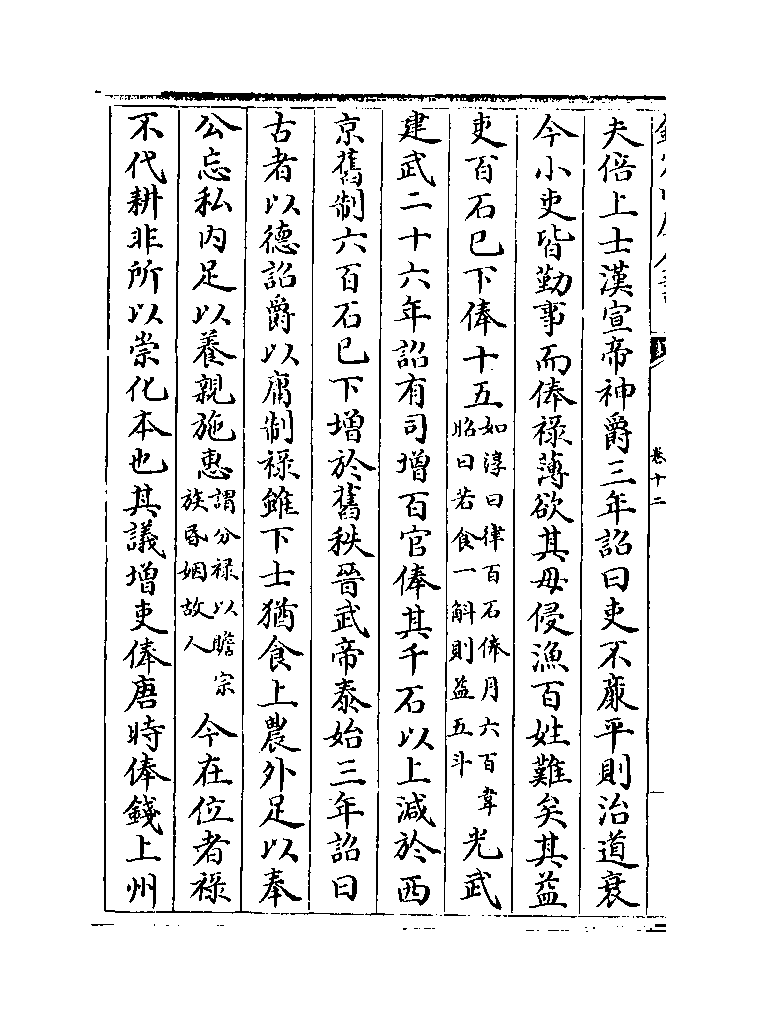 夫倍上士漢宣帝神爵三年詔曰吏不廉平則治道衰
今小吏皆勤事而俸禄薄欲其毋侵漁百姓難矣其益
吏百石已下俸十五如淳曰律百石俸月六百韋昭曰若食一斛則益五斗光武
建武二十六年詔有司增百官俸其千石以上減於西
京舊制六百石已下增於舊秩晉武帝泰始三年詔曰
古者以德詔爵以庸制禄雖下士猶食上農外足以奉
公忘私内足以養親施惠謂分禄以贍宗族昏姻故人今在位者禄
不代耕非所以崇化本也其議增吏俸唐時俸錢上州
卷十二